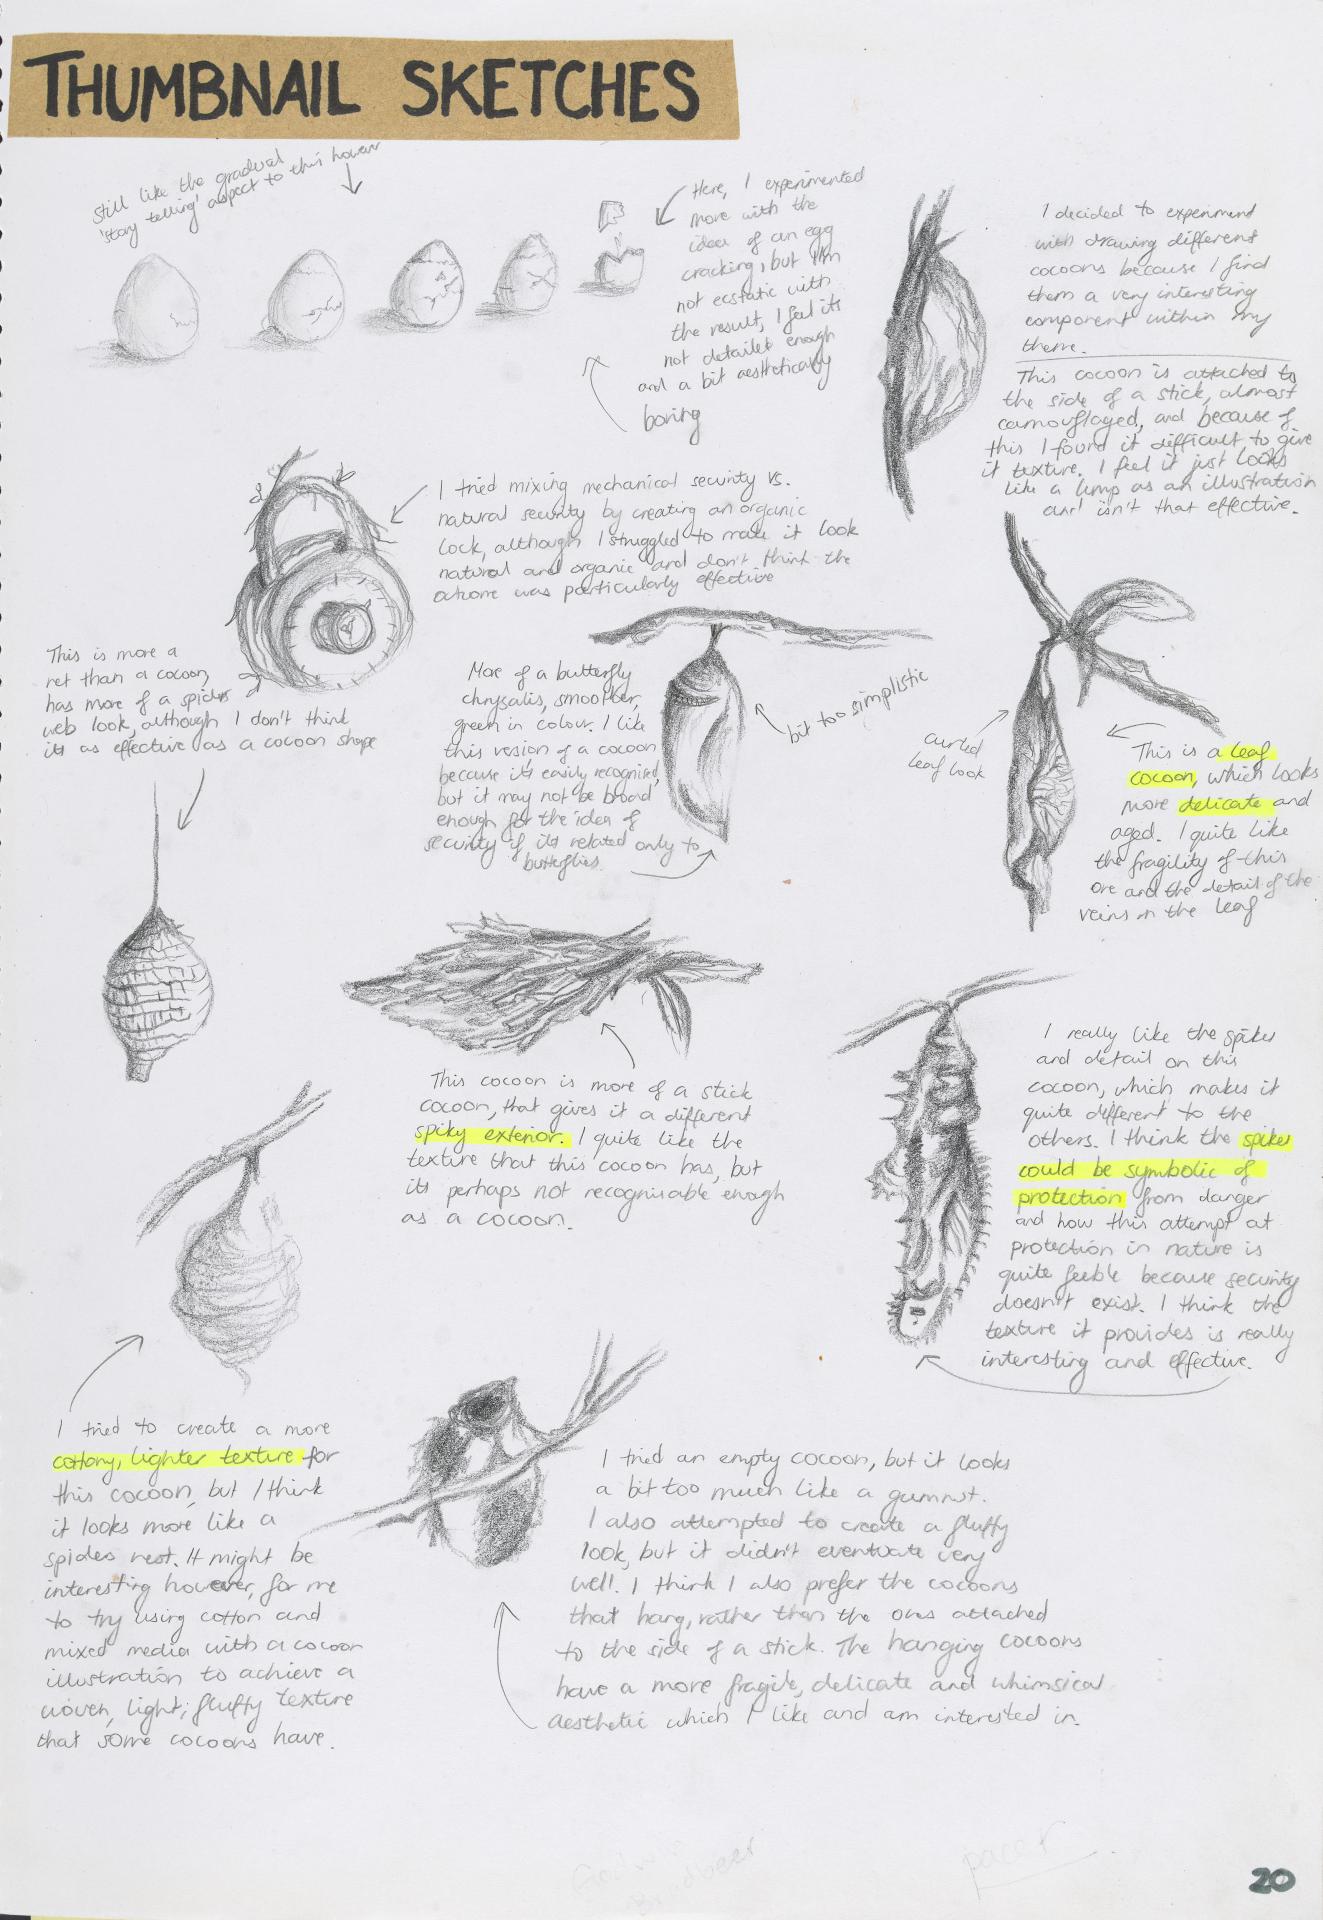 THUMBNAIL SKETCHES
Still like the gradual
'story telling' aspect to this however
Here, I experimented
more with the
idea of an egg
cracking, but I'm
not ecstatic with
the result, I feel its
not detailed enough
and a bit aesthetically
boring
I decided to experiment
with drawing different
cocoons because I find
them a very interesting
component within my
theme.
This cocoon is attached to
the side of a stick, almost
camouflaged, and because of
this I found it difficult to give
it texture. I feel it just looks
like a lump as an illustration
and isn't that effective.
I tried mixing mechanical security vs.
natural security by creating an organic
lock, although I struggled to make it look
natural and organic and don't think the
outcome was particularly effective
This is more a
net than a cocoon,
has more of a spider
web look, although I don't think
its as effective as a cocoon shape
More of a butterfly
chrysalis, smoother,
green in colour. I like
this version of a cocoon
because its easily recognised,
but it may not be broad
enough for the idea of
security if its related only to
butterflies.
bit too simplistic
curled
leaf look
This is a leaf
cocoon, which looks
more delicate and
aged. I quite like
the fragility of this
one and the detail of the
veins on the leaf
This cocoon is more of a stick
cocoon, that gives it a different
spiky exterior. I quite like the
texture that this cocoon has, but
its perhaps not recognisable enough
as a cocoon.
I really like the spikes
and detail on this
cocoon, which makes it
quite different to the
others. I think the spikes
could be symbolic of
protection from danger
and how this attempt at
protection in nature is
quite feeble because security
doesn't exist. I think the
texture it provides is really
interesting and effective.
I tried to create a more
cottony, lighter texture for
this cocoon, but I think
it looks more like a
spiders nest. It might be
interesting however, for me
to try using cotton and
mixed media with a cocoon
illustration to achieve a
woven, light, fluffy texture
that some cocoons have.
I tried an empty cocoon, but it looks
a bit too much like a gumnut.
I also attempted to create a fluffy
look, but it didn't eventuate very
well. I think I also prefer the cocoons
that hang, rather than the ones attached
to the side of a stick. The hanging cocoons
have a more fragile, delicate and whimsical
aesthetic which I like and am interested in.
pacer
20